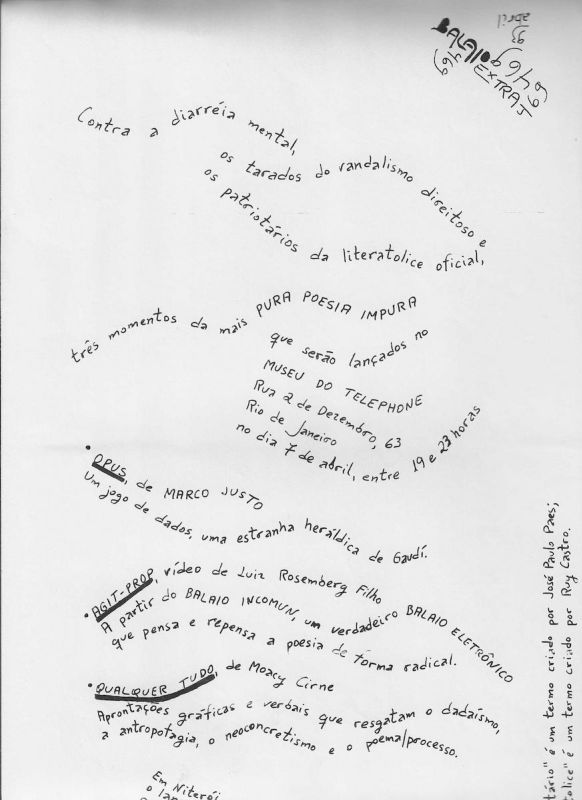 BALAIO
EXTRA
469
69469
abril
93
Contra a diarréia mental,
os tarados do vandalismo direitoso e
os patriotários da literatolice oficial,
três momentos da mais PURA POESIA IMPURA
que serão lançados no
MUSEU DO TELEPHONE
Rua 2 de Dezembro, 63
Rio de Janeiro
no dia 7 de abril, entre 19 e 23 horas
• OPUS, de MARCO JUSTO
Um jogo de dados, uma estranha heráldica de Gaudí.
• AGIT-PROP, vídeo de Luiz Rosemberg Filho
A partir do BALAIO INCOMUN, um verdadeiro BALAIO ELETRÔNICO
que pensa e repensa a poesia de forma radical.
• QUALQUER TUDO, de Moacy Cirne
Aprontações gráficas e verbais que resgatam o dadaísmo,
a antropofagia, o neoconcretismo e o poema/processo.
Em Niterói
tário" é um termo criado por José Paulo Paes;
tolice" é um termo criado por Ruy Castro.